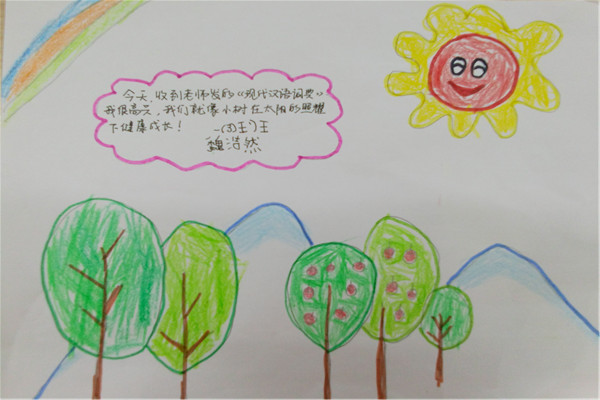 今天,收到老师发的《现代汉语词典》
我很高兴,我们就像小树在太阳的照耀
下健康成长!
一(3)王门王
魏浩然